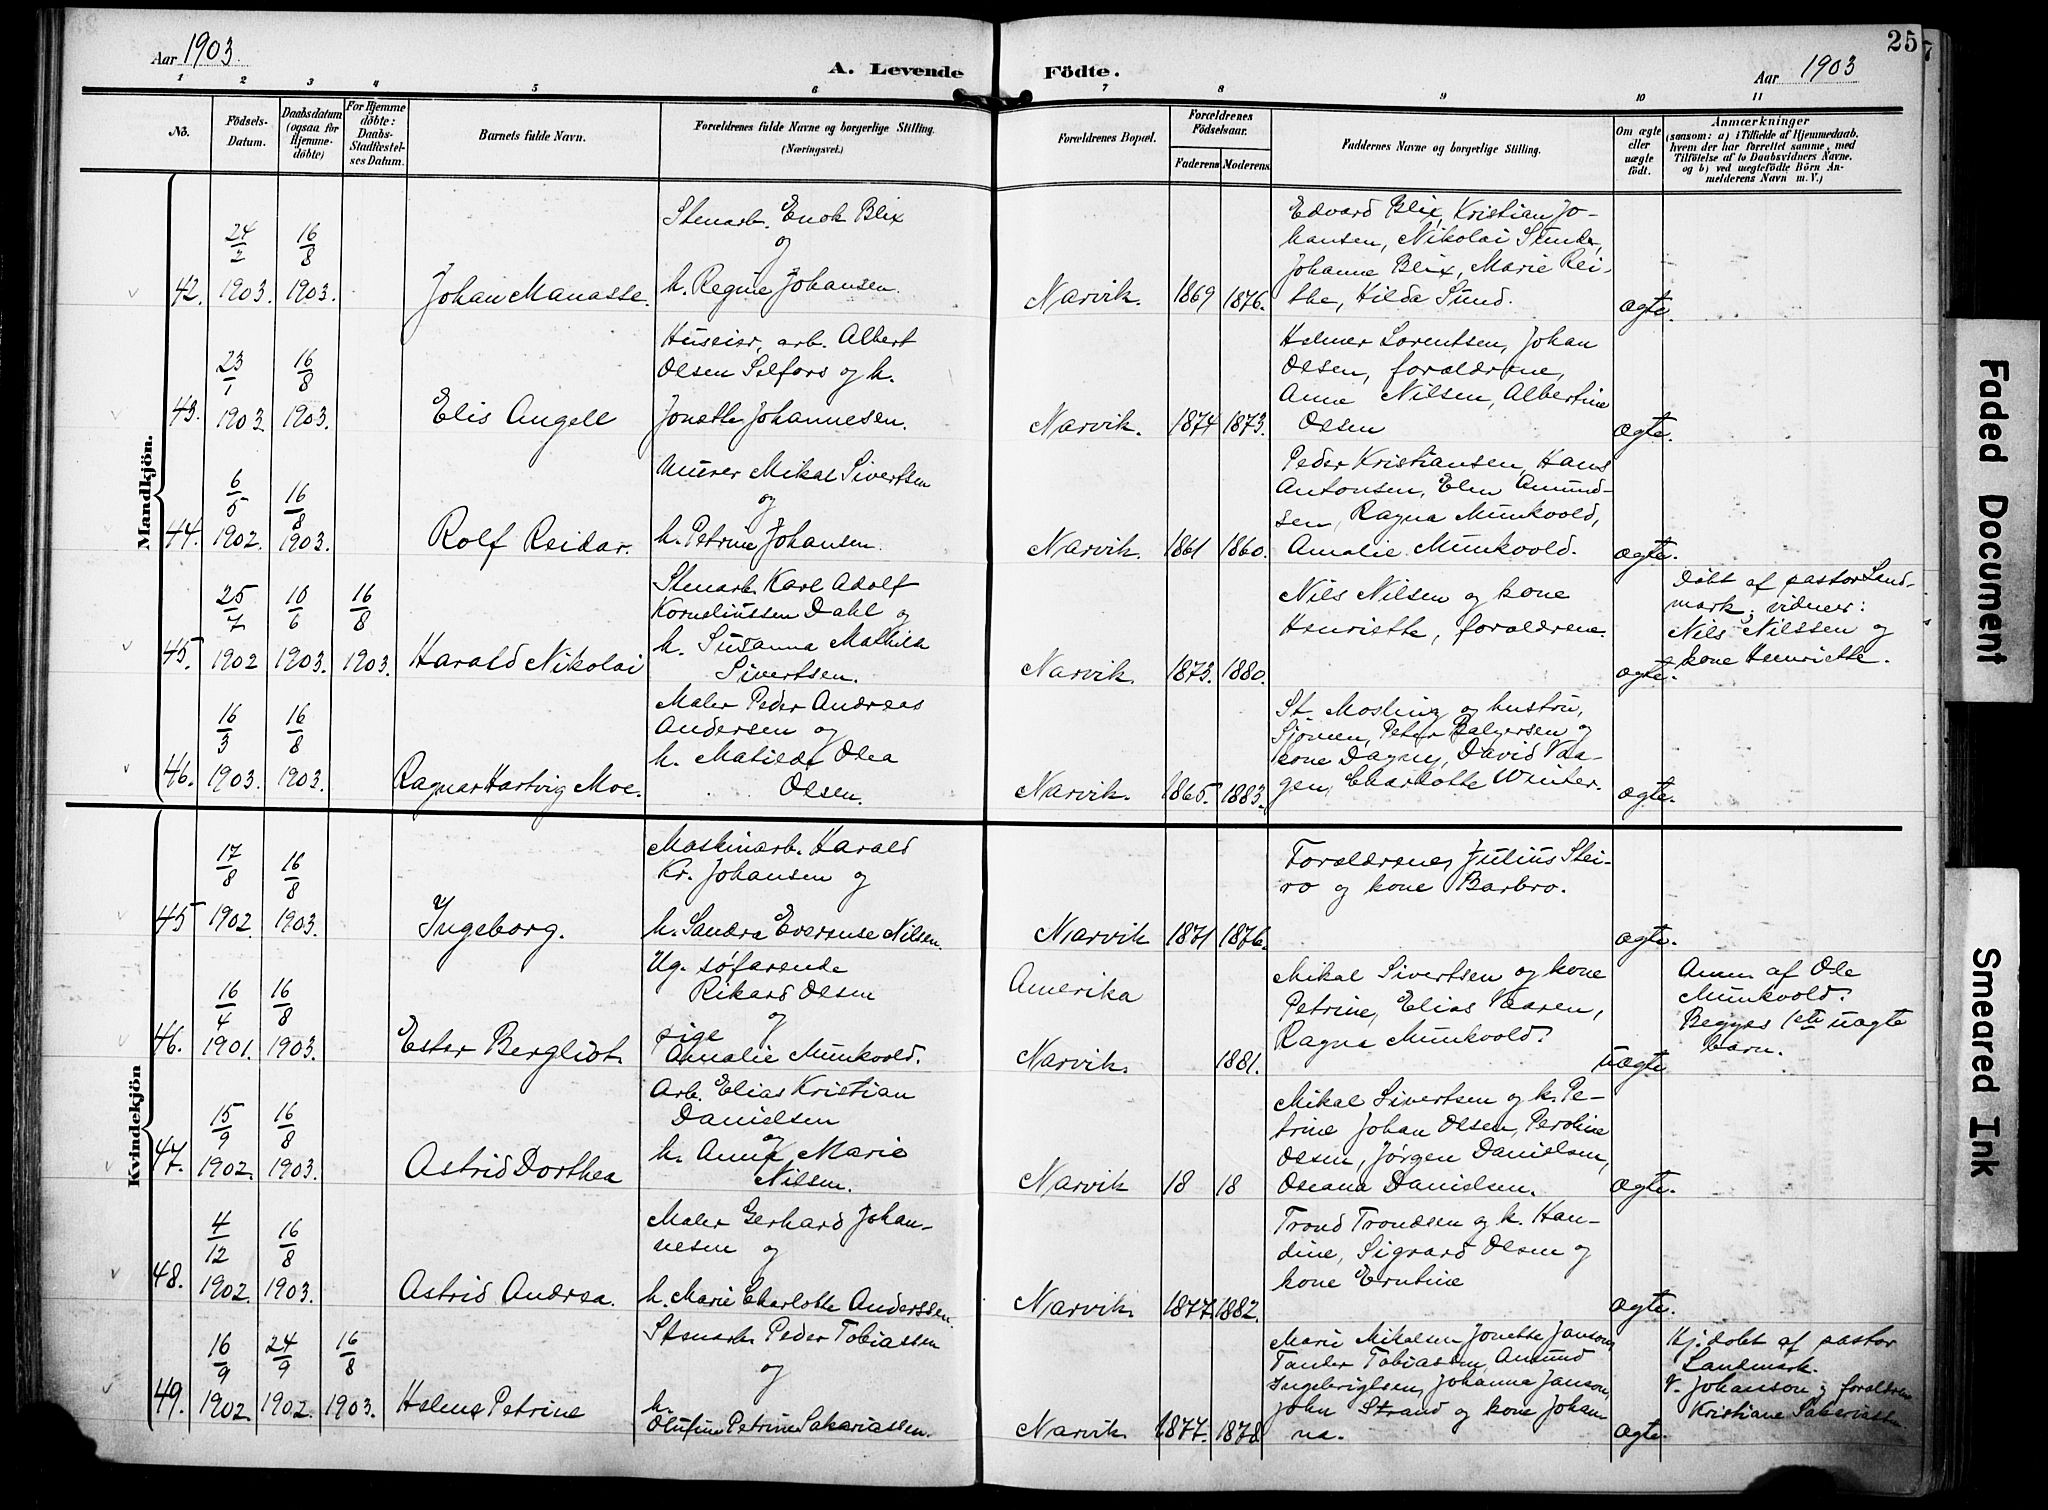 Aar 1903.
A. Levende Födte.
Aar 1903
25
1 2 3 4 5 6 7 8 9 10 11
No.
Födsels-Datum.
Daabsdatum (ogsaa for Hjemme-döbte)
For Hjemme döbte: Daabs-Stadfæstelses Datum.
Barnets fulde Navn.
Forældrenes fulde Navne og borgerlige Stilling.
(Næringsvei.)
Forældrenes Bopæl.
Forældrenes Födselsaar.
Faderens Moderens
Faddernes Navne og borgerlige Stilling.
Om ægte eller uægte födt.
Anmærkninger
(saasom: a) i Tilfælde af Hjemmedaab.
hvem der har forrettet samme, med
Tilföielse af to Daabsvidners Navne.
og b) ved uægtefödte Börn An-
melderens Navn m. V.)
Mandkjön.
42. 24/2 1903. 16/8 1903. Johan Manasse.
Stenarb. Enok Blix
og
h. Regine Johansen.
Narvik. 1869 1876.
Edvard Blix, Kristian Jo-
hansen, Nikolai
Johanne Blix, Marie Rei-
the, Hilda Sund.
ægte.
43. 23/1 1903. 16/8 1903. Elis Angell
Huseier, arb. Albert
Olsen Selfors og h.
Jonette Johannesen.
Narvik. 1874 1873.
Helmer Lorentsen, Johan
Olsen, forældrene,
Anna Nilsen, Albertine
Olsen
ægte.
44. 6/5 1902. 16/8 1903. Rolf Reidar.
Murer Mikal Sivertsen
og
h. Petrine Johansen.
Narvik. 1861 1860.
Peder Kristiansen, Hans
Antonsen, Elen Amund-
sen, Ragna Munkvold,
Amalie Munkvold.
ægte.
45. 25/7 1902 10/6 1903. 16/8 1903. Harald Nikolai
Stenarb. Karl Adolf
Korneliussen Dahl og
h. Susanna Mathilde
Sivertsen.
Narvik. 1873. 1880.
Nils Nilsen og kone
Henriette, forældrene.
ægte.
Döbt af pastor Land-
mark, vidner:
Nils Nilssen og
kone Henriette.
46. 16/3 1903. 16/8 1903. Ragnar Hartvig Moe.
Maler Peder Andreas
Andersen og
h. Matilde Olea
Olsen.
Narvik. 1865. 1883.
St. Mosling og hustru,
Peter og
kone Dagny, David Vaa-
gen, Charlotte Winter.
ægte.
Kvindekjön
45 17/8 1902. 16/8 1903. Ingeborg.
Maskinarb. Harald
Kr. Johansen og
h. Sandra Nilsen.
Narvik 1871 1876.
Forældrene, Julius Stei-
ro og kone Barbro.
ægte.
46. 16/4 1901. 16/8 1903. Ester Bergliot.
Ug. søfarende
Rikard Olsen
og
pige
Amalie Munkvold.
Amerika
Narvik. 1881.
Mikal Sivertsen og kone
Petrine, Elias Vaaren,
Ragna Munkvold.
uægte
Anm. af Ole
Munkvold.
Begges 1ste uægte
barn.
47. 15/9 1902. 16/8 1903. Astrid Dorthea
Arb. Elias Kristian
Danielsen
og
h. Anna Marie
Nilsen.
Narvik 18 18
Mikal Sivertsen og k. Pe-
trine Johan Olsen, Peroline
Olsen, Jørgen Danielsen,
Oseana Danielsen.
ægte.
48. 4/12 1902. 16/8 1903. Astrid Andrea.
Maler Gerhard Johan-
nesen og
h. Marie Charlotte Anderssen.
Narvik. 1877. 1882.
Trond Trondsen og k. Han-
dine, Sigvard Olsen og
kone Erntine
ægte.
49. 16/9 1902. 24/9 1902. 16/8 1903. Helene Petrine
Stenarb. Peder Tobiassen
og
h.
Olufine Petrine Sakariassen.
Narvik. 1877. 1878
Marie Mikalsen, Jonette Janson,
Tobiassen, Amund
Ingebrigtsen, Johanna Janson,
John Strand og kone Johan
na.
ægte.
Hj. döbt af pastor
Landmark.
V. Johanson og forældrene
Kristiane
Faded Document
Smeared Ink